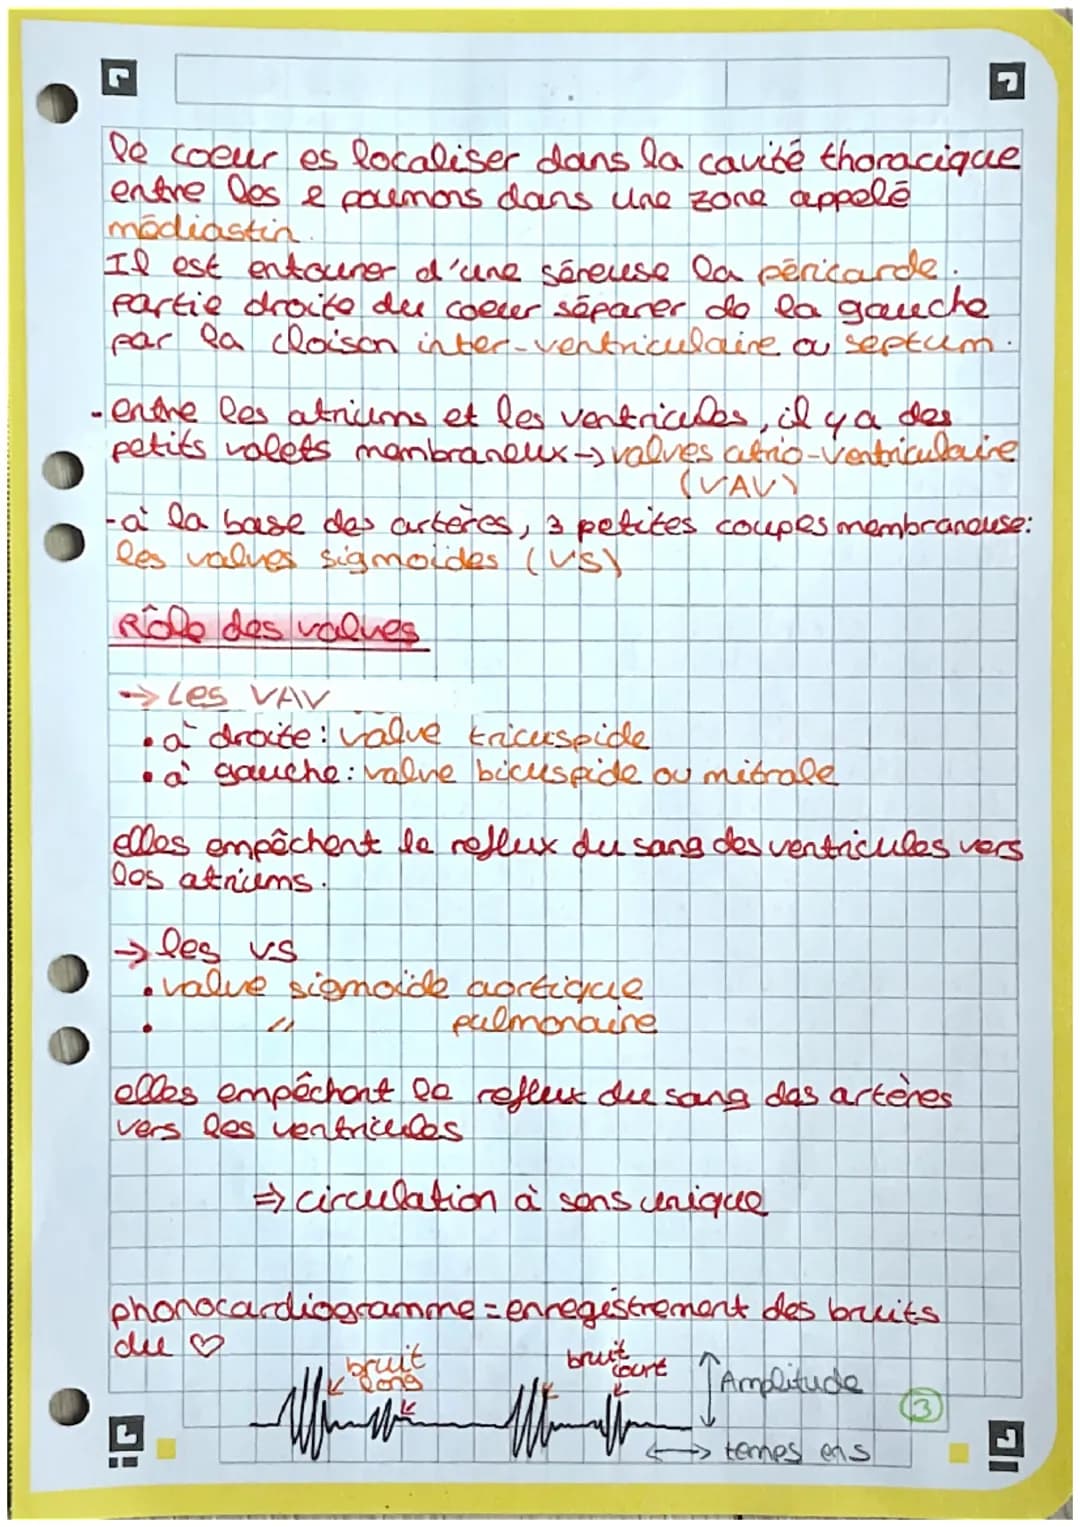 le coeur es localiser dans la cavité thoracique
entre les 2 poumons dans une zone appelé
médiastin.
Il est entourer d'une séreuse la péricarde.
partie droite du coeur séparer de la gauche
par la cloison inter-ventriculaire ou septum.
-entre les atriums et les ventricules, il y a des
petits volets membraneux→valves atrio-ventriculaire
(VAV)
-à la base des artères, 3 petites coupes membraneuse:
les valves sigmoïdes (VS)
Rôle des valves
→ Les VAV
• à droite: valve tricuspide
• à gauche: valve bicuspide ou mitrale
elles empêchent le reflux du sang des ventricules vers
les atriums.
→ les vs
• valve sigmoïde aortique
• " pulmonaire
elles empêchent le reflux du sang des artères
vers les ventricules
⇒ circulation à sens unique
phonocardiogramme = enregistrement des bruits
du ♡
bruit long
bruit court
Amplitude
3
temps en s